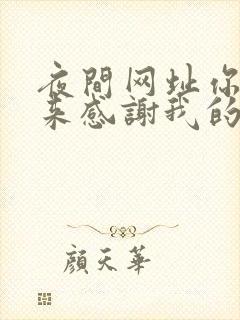 夜間网址你
来感謝我的
顔天華